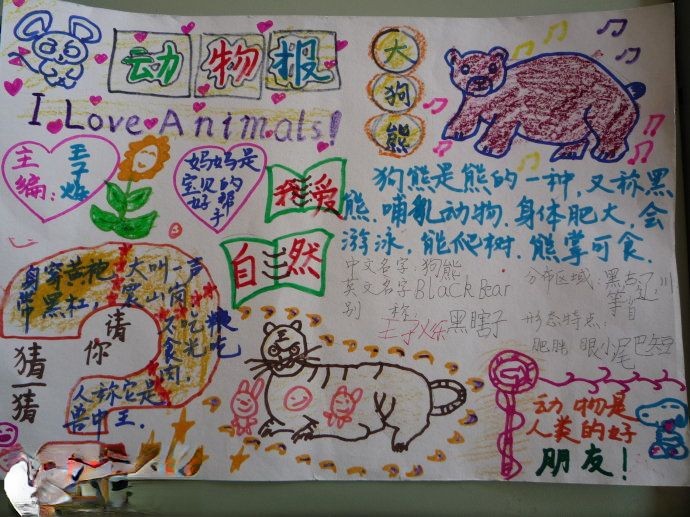 动物报
I Love Animals!
大狗熊
主编:
妈妈是
宝贝的
好帮
手
我爱
自然
狗熊是熊的一种,又称黑
熊,哺乳动物,身体肥大,会
游泳,能爬树,熊掌可食.
中文名字:狗熊
英文名字Black Bear
别 称:黑瞎子
分布区域:
形态特点:
肥胖 眼小尾巴短
请你
猜一猜
身穿黄袍
带黑杠,
大叫一声
震山岗,
人称它是
兽中王.
动物是
人类的好
朋友!